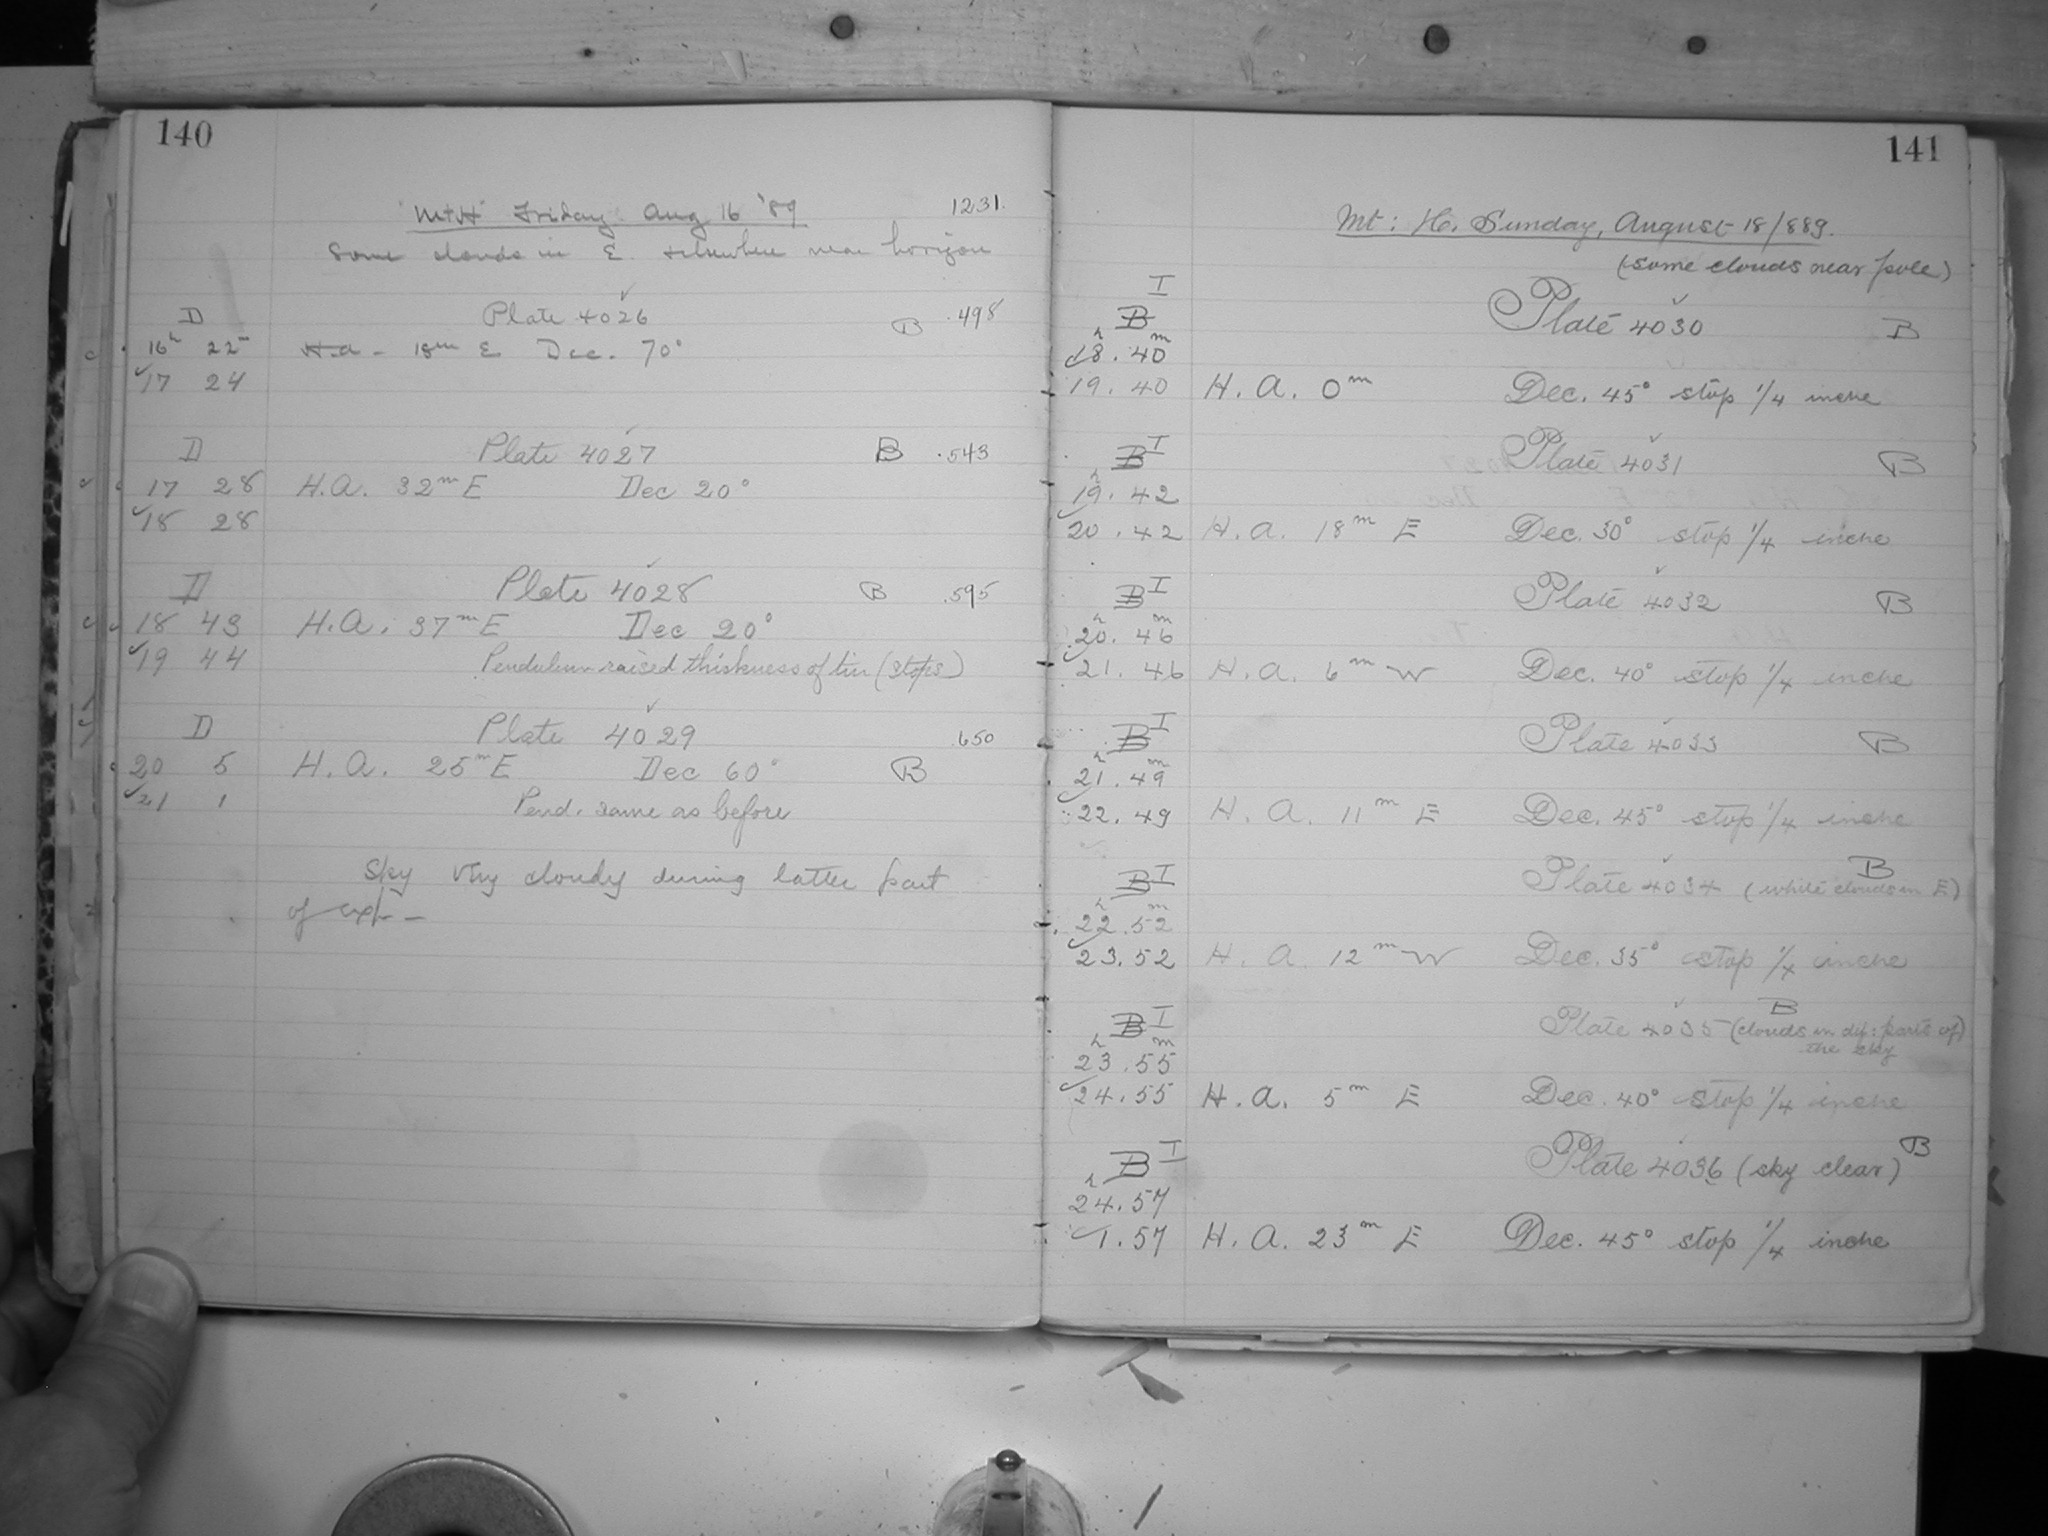 140
"Mt H" Friday Aug 16 '89 1231.
Some clouds in E. elsewhere near horizon
D Plate 4026 B .498
16h 22m H.a - 18m E Dec. 70°
17 24
D Plate 4027 B .543
17 28 H.A. 32m E Dec 20°
18 28
D Plate 4028 B .595
18 43 H.A. 37m E Dec 20°
19 44 Pendulum raised thickness of tin (stops)
D Plate 4029 .650
20 5 H.A. 25m E Dec 60° B
21 1 Pend. same as before
Sky very cloudy during latter part
of exp. -
141
Mt: H. Sunday, August 18/889.
(some clouds near pole)
I
B Plate 4030 B
18h. 40m
19. 40 H. A. 0m Dec. 45° stop 1/4 inche
B I Plate 4031 B
19h. 42
20. 42 H. A. 18m E Dec. 30° stop 1/4 inche
B I Plate 4032 B
20h. 46m
21. 46 H. A. 6m W Dec. 40° stop 1/4 inche
B I Plate 4033 B
21h. 49m
22. 49 H. A. 11m E Dec. 45° stop 1/4 inche
B I Plate 4034 (white clouds in E) B
22h. 52m
23. 52 H. A. 12m W Dec. 35° stop 1/4 inche
B I Plate 4035 (clouds in dif: parts of) B
the sky
23h. 55m
24. 55 H. A. 5m E Dec. 40° stop 1/4 inche
B I Plate 4036 (sky clear) B
24h. 57
1. 57 H. A. 23m E Dec. 45° stop 1/4 inche